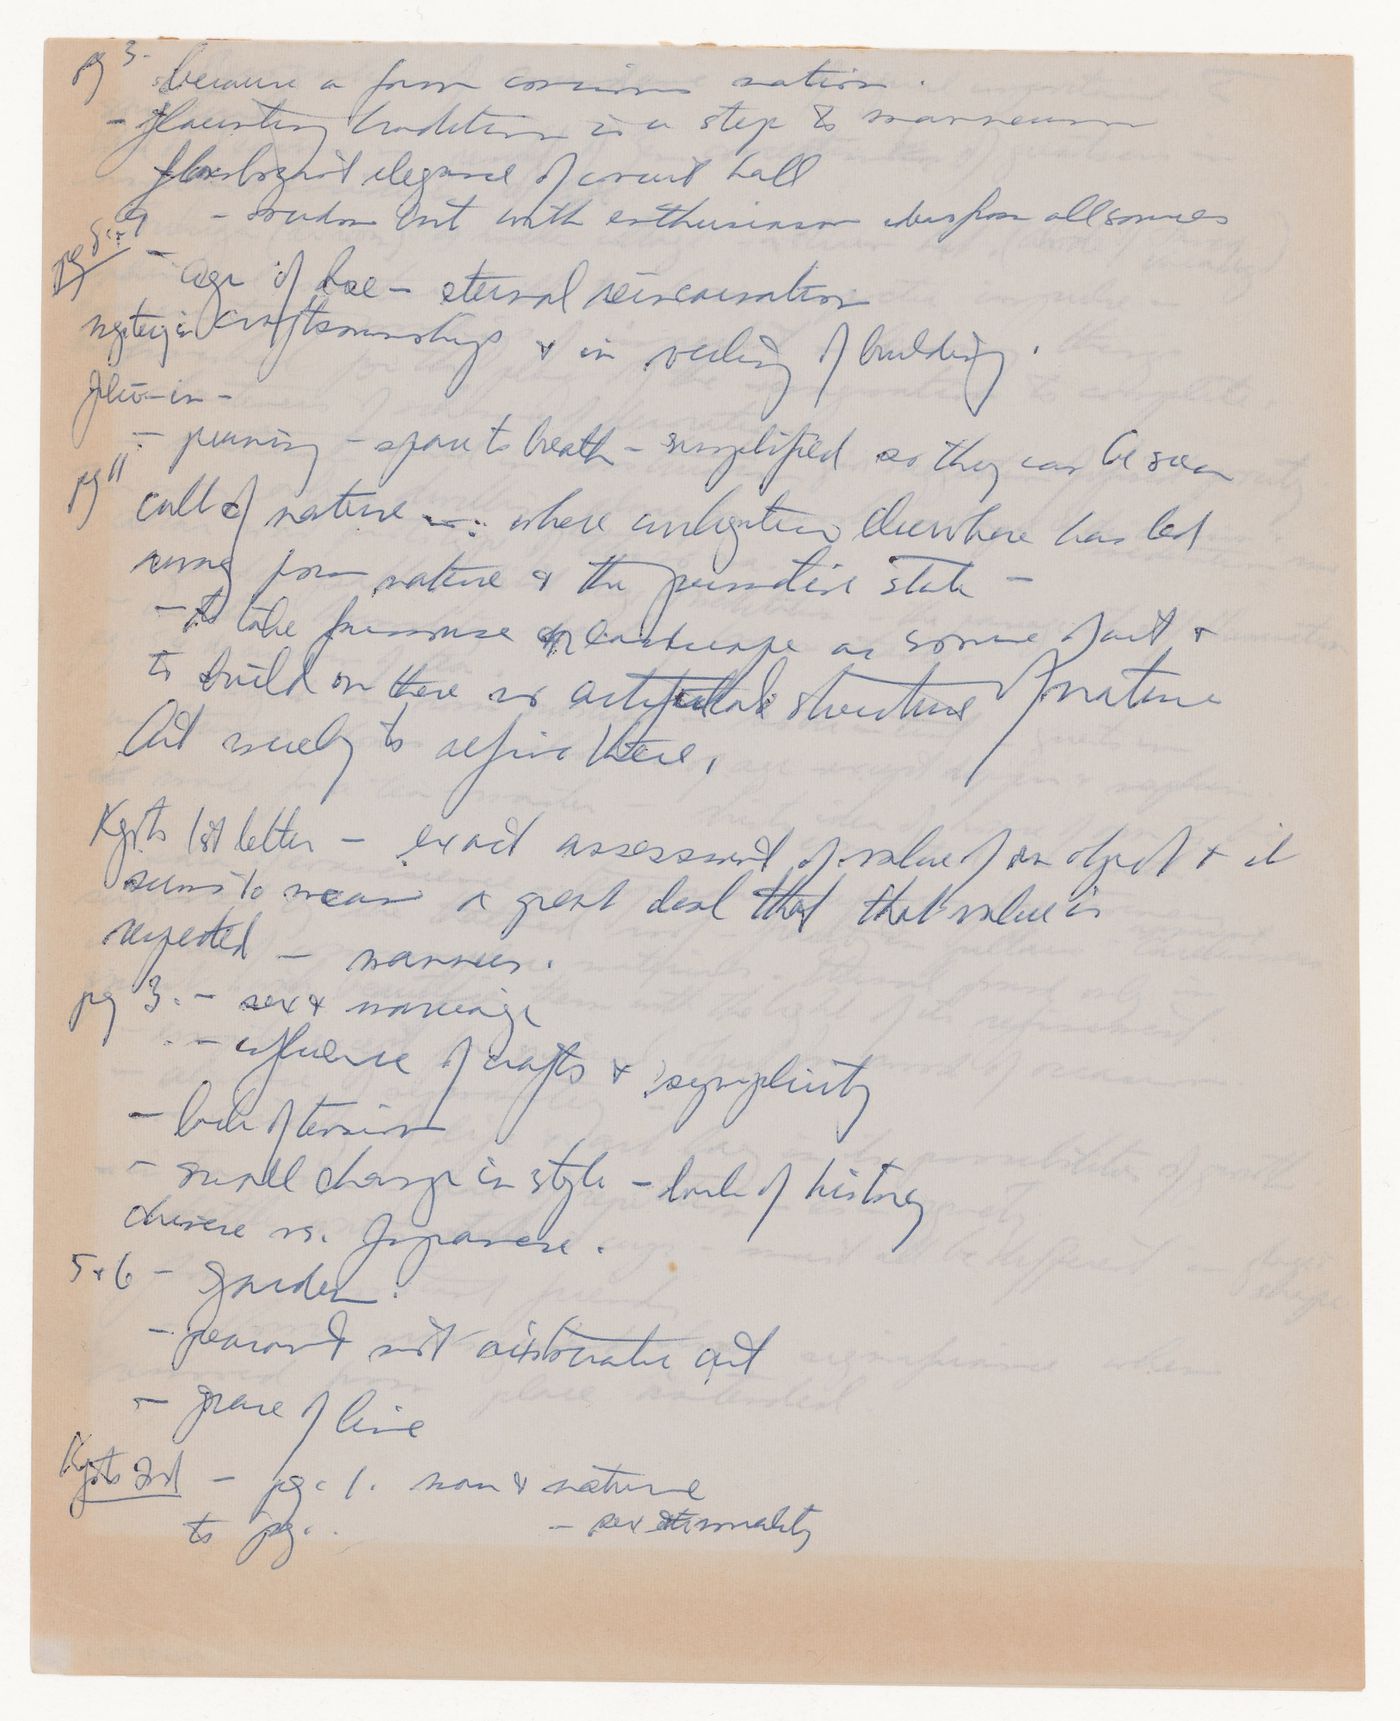 pg 3- because a form conscious nation.
- flaunting tradition is a step to mannerism
flamboyant elegance of court hall
pg 8 or 9 - random but with enthusiasm also from all sources
- age of base - eternal reincarnation
in craftsmanship & in veiling of building.
- pruning - space to breath - simplified so they can be seen
pg 11 cult of nature - : where civilization elsewhere has led
away from nature & the primitive state -
- to take primrose landscape as source of art &
to build on there an artificial structure of nature
Art merely to refine these,
Kyoto 1st letter - exact assessment of value of an object & it
seems to mean a great deal that that value is
respected - manners.
pg 3. - sex & marriage
- influence of crafts & symplicity
- lack of tension
- small change in style - lack of history
chinese vs. Japanese.
5 & 6 - garden.
- peasant not aristocratic art
- grace of line
Kyoto 2nd - pg. 1. man & nature
to pg. - sex & morality